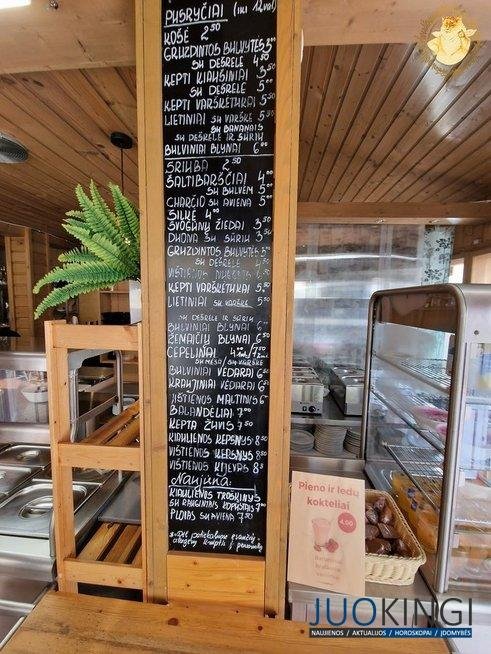 PUSRYČIAI (iki 12 val)
KOŠĖ 2 50
GRUZDINTOS BULVYTĖS 3 00
SU DEŠRELE 4 50
KEPTI KIAUŠINIAI 3 50
SU DEŠRELE 5 00
KEPTI VARŠKĖTUKAI 5 50
LIETINIAI SU VARŠKE 5 50
SU BANANAIS
SU DEŠRELE IR SŪRIU
BULVINIAI BLYNAI 6 00
SRIUBA 2 50
ŠALTIBARŠČIAI 4 00
SU BULVĖM 5 00
CHARČIO SU AVIENA 5 00
SILKĖ 4 00
SVOGŪNŲ ŽIEDAI 3 50
DUONA SU SŪRIU 3 50
GRUZDINTOS BULVYTĖS 3 00
SU DEŠRELE 4 50
VIŠTIENOS
KEPTI VARŠKĖTUKAI 5 50
LIETINIAI SU VARŠKE 5 50
SU DEŠRELE IR SŪRIU
BULVINIAI BLYNAI 6 00
ŽEMAIČIŲ BLYNAI 6 50
CEPELINAI
SU MĖSA / SU VARŠKE
BULVINIAI VĖDARAI 6 00
KRAUJINIAI VĖDARAI 6 00
VIŠTIENOS MALTINIS 6 00
BALANDĖLIAI 7 00
KEPTA ŽUVIS 7 50
KIAULIENOS KEPSNYS 8 50
VIŠTIENOS KEPSNYS 8 00
VIŠTIENOS KIJEVAS 8 5
Naujiena:
KIAULIENOS TROŠKINYS
SU RAUGINTAIS KOPŪSTAIS 7 00
PLOVAS SU AVIENA 7 50
Pieno ir ledų
kokteiliai
4.00
JUOKINGI
NAUJIENOS / AKTUALIJOS / HOROSKOPAI / ĮDOMYBĖS